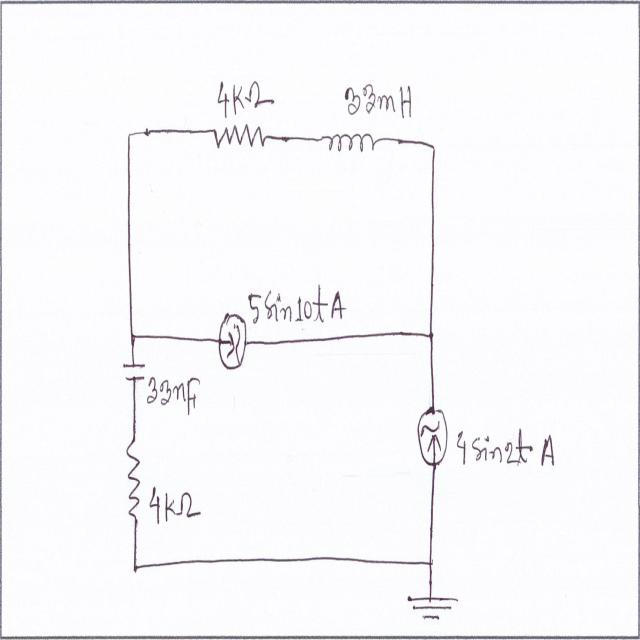 4KΩ
33mH
5sin10t A
33nF
4sin2t A
4KΩ